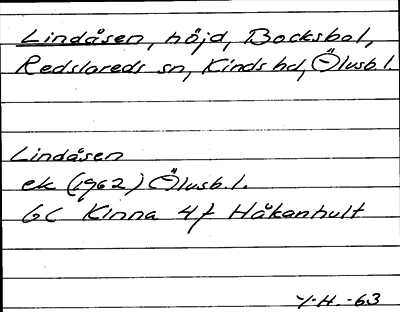 Lindåsen, höjd, Bocksbol,
Redslareds sn, Kinds hd, Älvsb. l.
Lindåsen
ek (1962) Älvsb. l.
6C Kinna 4f Håkanhult
Y.H.-63